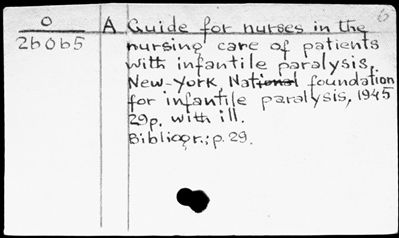 O A Guide for nurses in the
26065 nursing care of patients
with infantile paralysis,
New-York, National foundation
for infantile paralysis, 1945
29p. with ill.
Bibliogr.: p. 29.